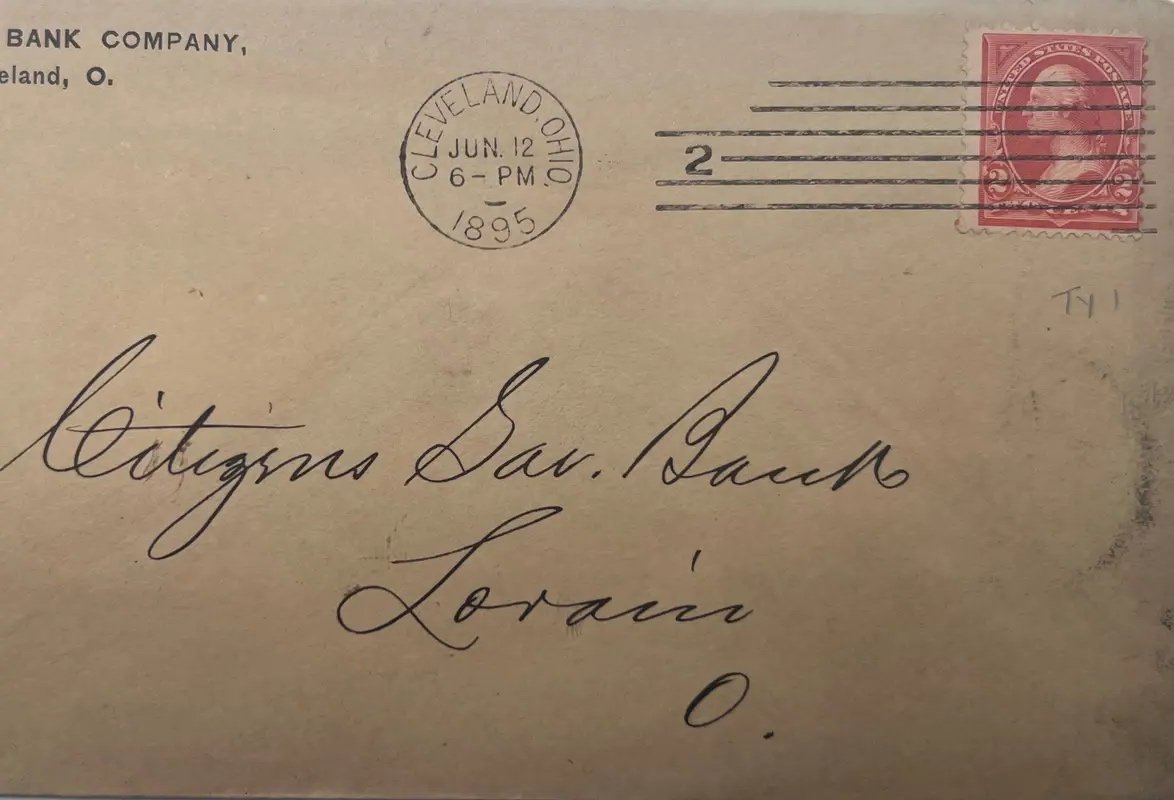 BANK COMPANY,
eland, O.
CLEVELAND, OHIO.
JUN. 12
6 - PM
1895
2
UNITED STATES POSTAGE
2 2
Ty 1
Citizens Sav. Bank
Lorain
O.